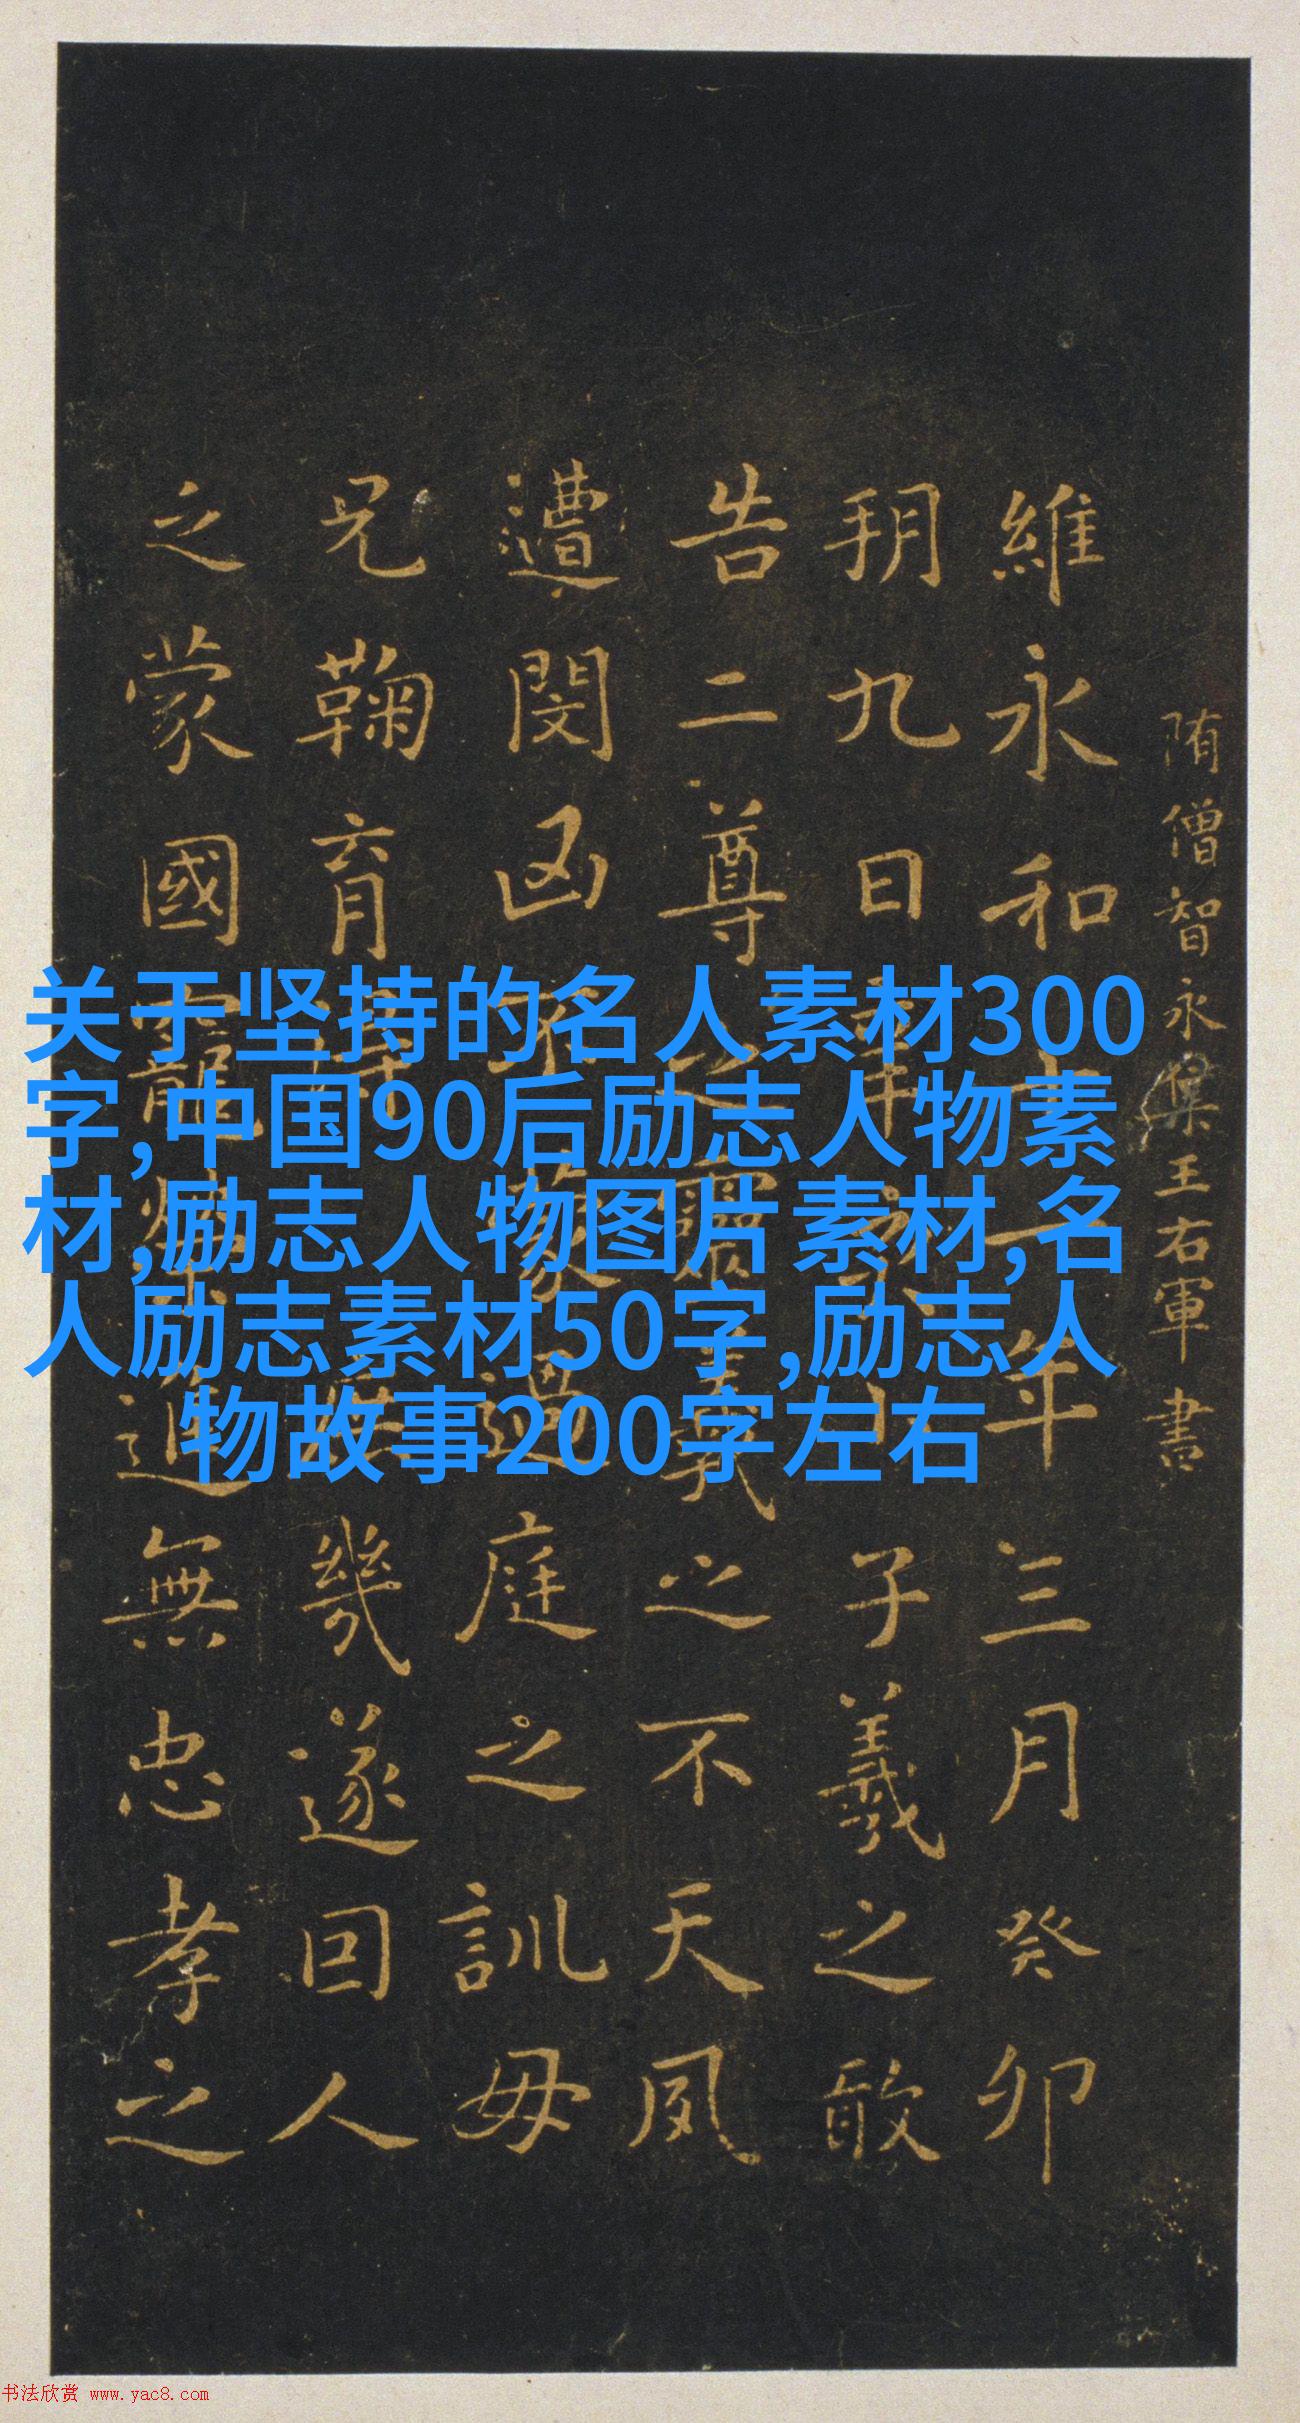 隋僧智永集王右軍書
維永和十一年三月癸卯
朔九日辛亥小子羲之敢
告二尊之靈羲之不天夙
遭閔凶不蒙過庭之訓毋
兄鞠育得漸庶幾遂因人
之蒙國寵榮進無忠孝之
关于坚持的名人素材300
字,中国90后励志人物素
材,励志人物图片素材,名
人励志素材50字,励志人
物故事200字左右
书法欣赏 www.yac8.com